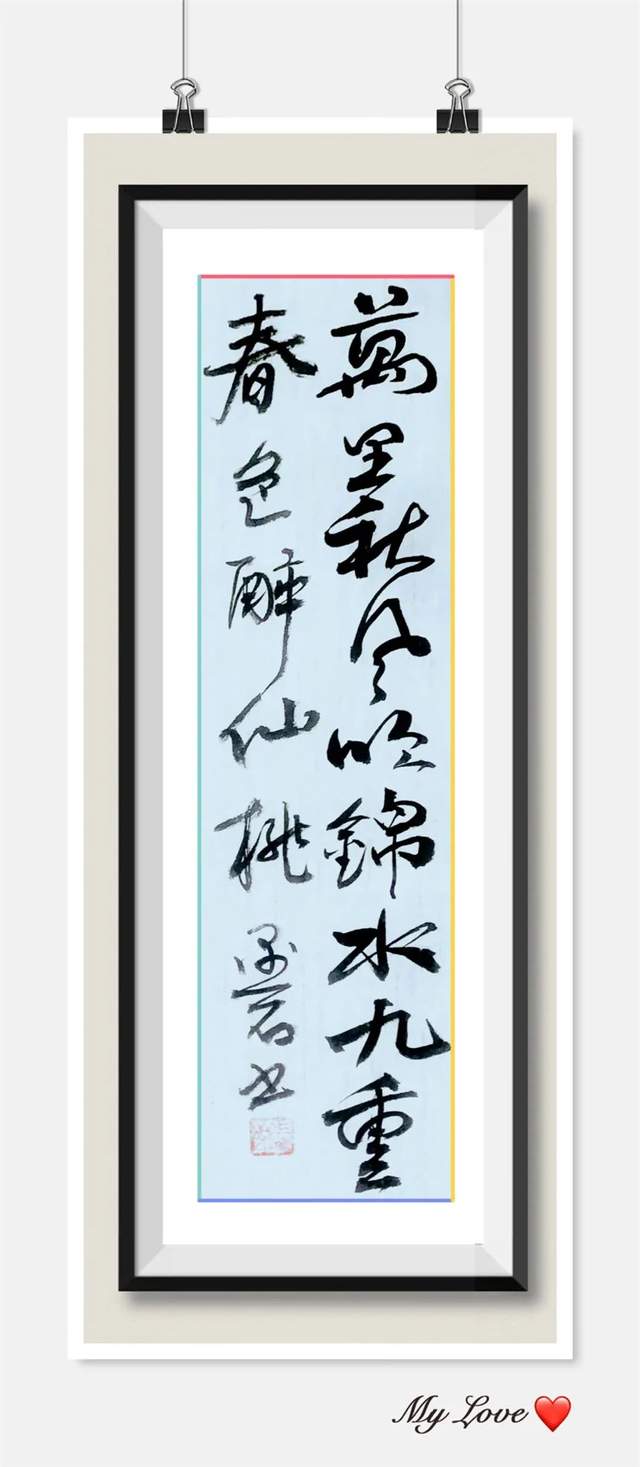 萬里秋風吹錦水九重
春色醉仙桃 书
My Love ❤️